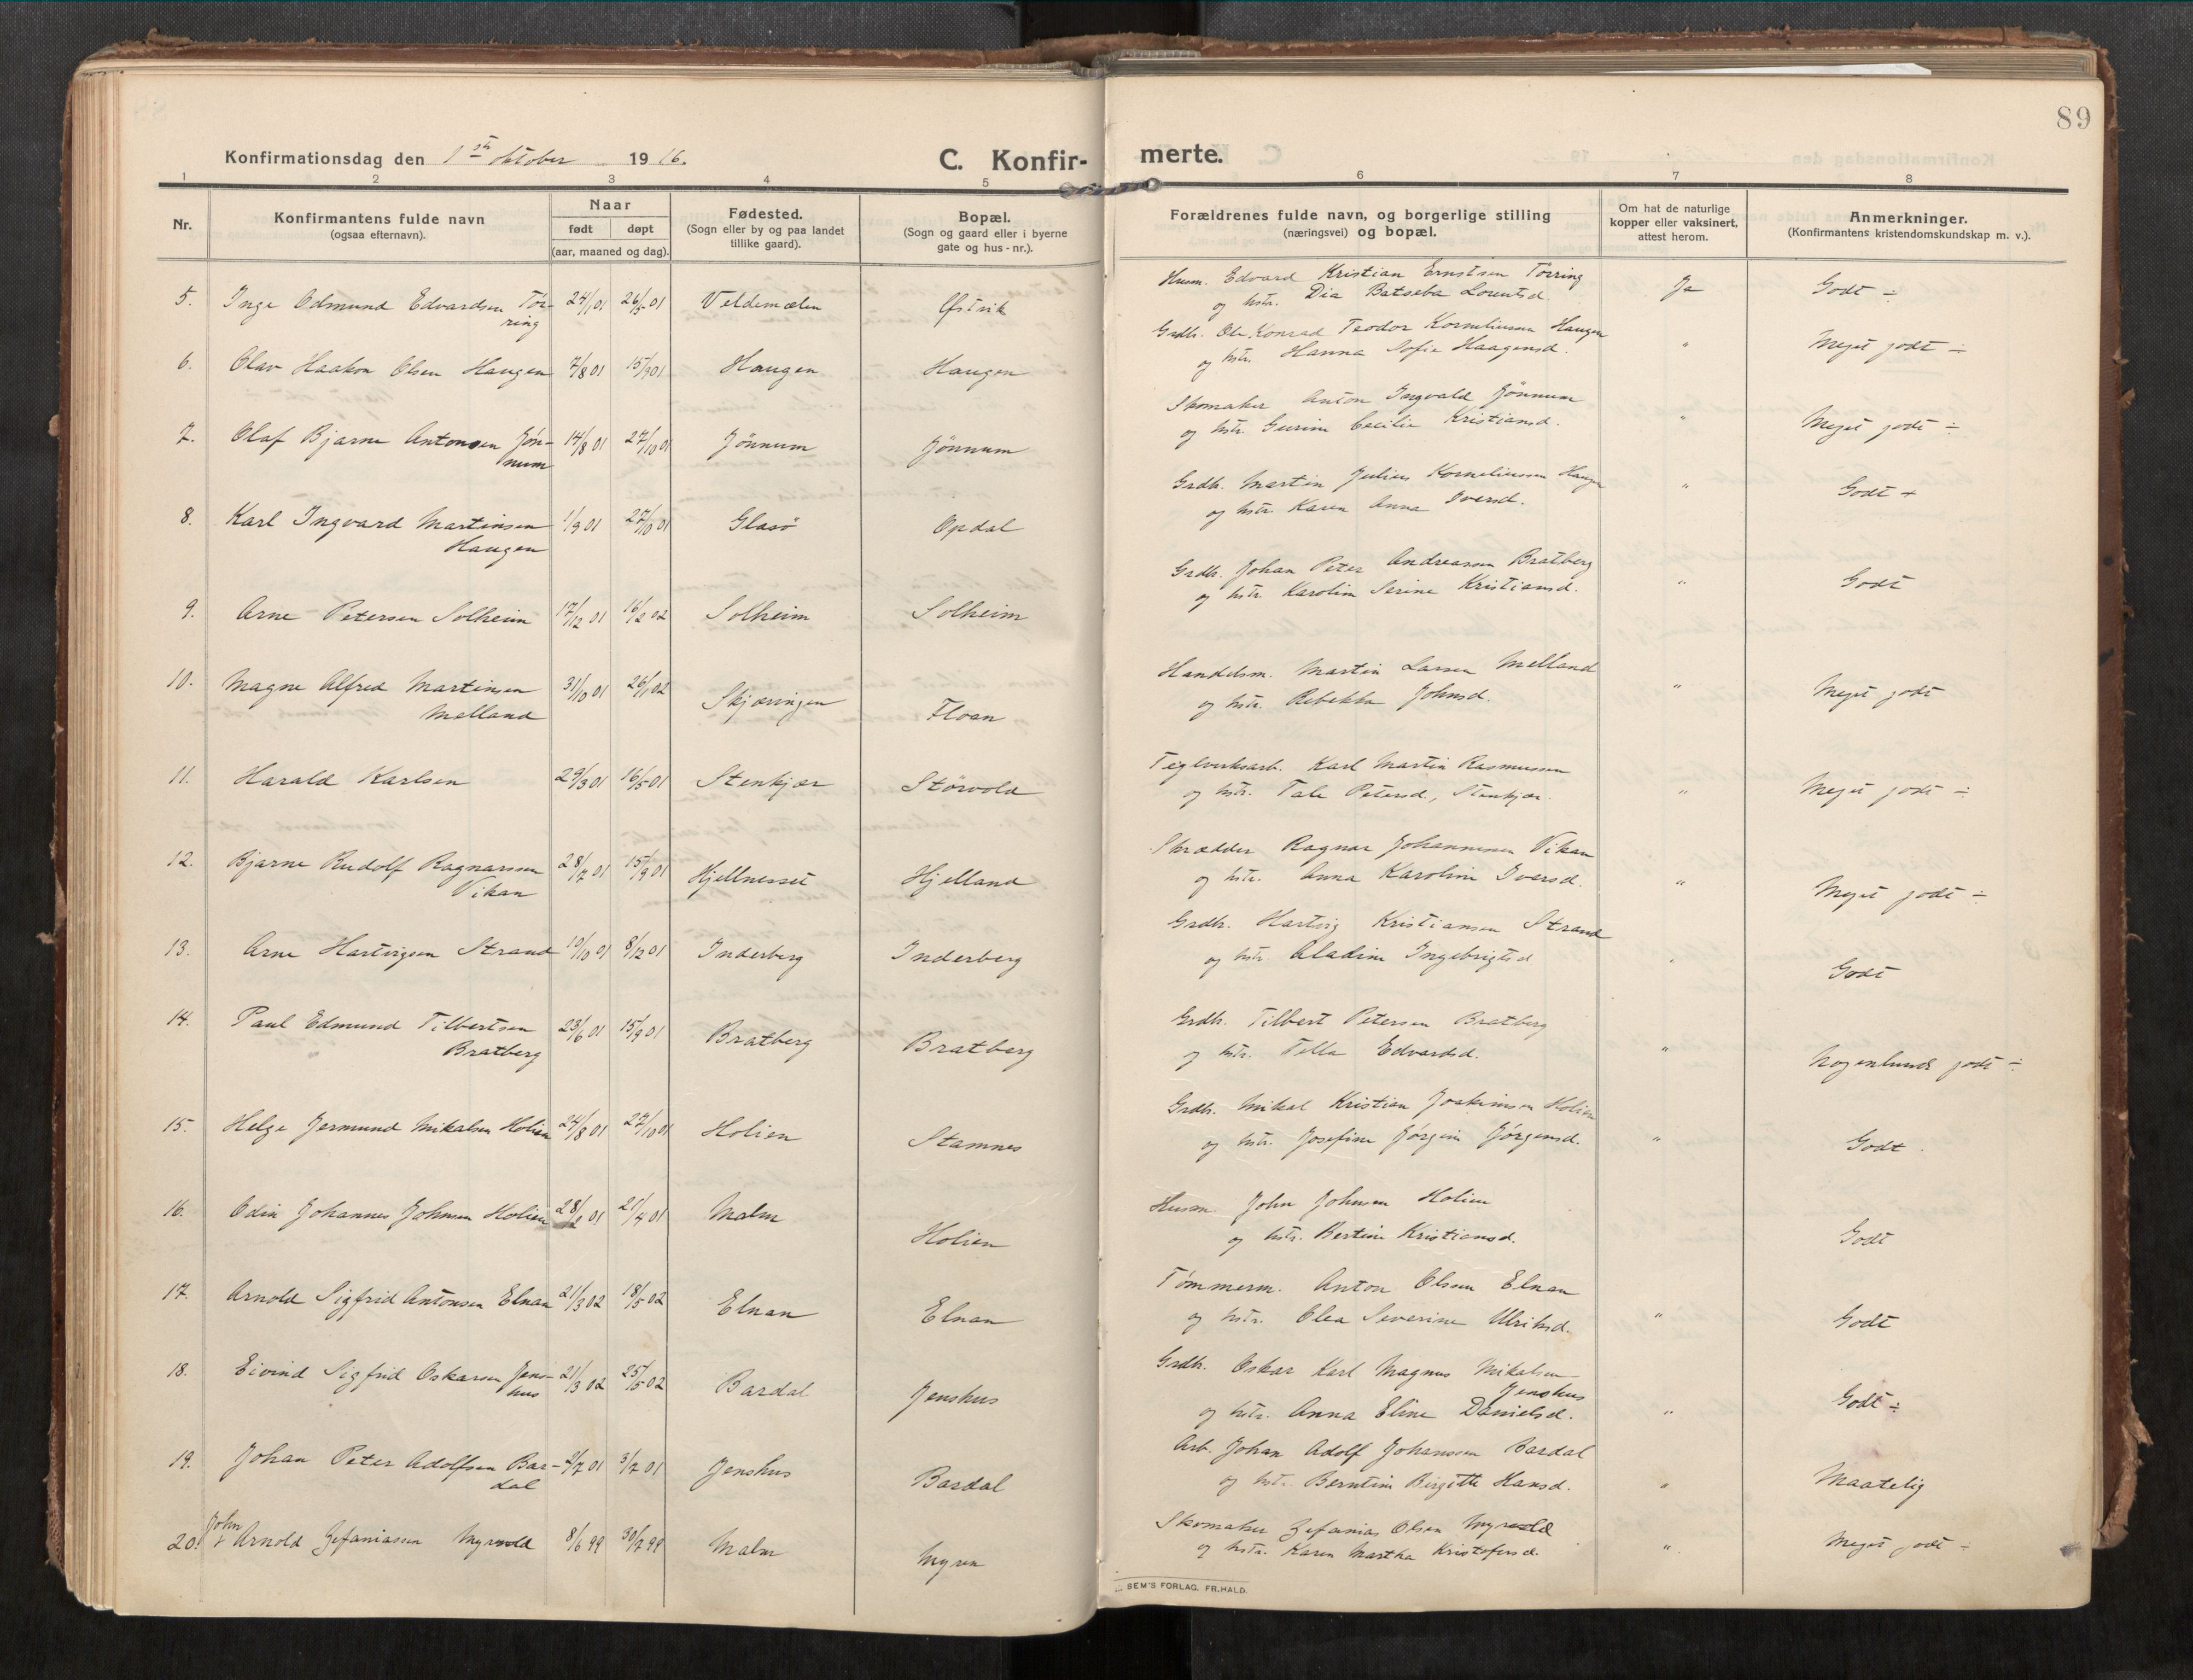 89
Konfirmationsdag den 1ste oktober 1916.
C. Konfir-
merte.
1 2 3 4 5 6 7 8
Nr.
Konfirmantens fulde navn
(ogsaa efternavn).
Naar
født døpt
(aar, maaned og dag).
Fødested.
(Sogn eller by og paa landet
tillike gaard).
Bopæl.
(Sogn og gaard eller i byerne
gate og hus-nr.).
Forældrenes fulde navn, og borgerlige stilling
(næringsvei) og bopæl.
Om hat de naturlige
kopper eller vaksinert,
attest herom.
Anmerkninger.
(Konfirmantens kristendomskundskap m. v.).
Husm. Edvard Kristian Ernstsen Tørring
5. Inge Edmund Edvardsen Tør- 24/1 01 26/5 01 Veldemælen Østvik og hstr. Dia Batseba Lorentsd. Ja Godt ÷
ring
Grdbr. Ole Konrad Teodor Korneliussen Haugen
6. Olav Haakon Olsen Haugen 7/8 01 15/9 01 Haugen Haugen og hstr. Hanna Sofie Haagensd. " Meget godt ÷
Skomaker Anton Ingvald Jønnum
7. Olaf Bjarne Antonsen Jøn- 14/8 01 27/10 01 Jønnum Jønnum og hstr. Gurine Cecilie Kristiansd. " Meget godt ÷
num
Grdbr. Martin Julius Korneliussen Haugen
8. Karl Ingvard Martinsen 1/9 01 27/10 01 Glasø Opdal og hstr. Karen Anna Iversd. " Godt +
Haugen
Grdbr. Johan Peter Andreassen Bratberg
9. Arne Petersen Solheim 17/12 01 16/2 02 Solheim Solheim og hstr. Karolin Serine Kristiansd. " Godt
Handelsm. Martin Larsen Melland
10. Magne Alfred Martinsen 31/10 01 26/1 02 Skjæringen Floan og hstr. Rebekka Johnsd. " Meget godt
Melland
Teglverksarb. Karl Martin Rasmussen
11. Harald Karlsen 29/3 01 16/5 01 Stenkjær Størvold og hstr. Tale Petersd, Stenkjær. " Meget godt ÷
Skrædder Ragnar Johannesen Vikan
12. Bjarne Rudolf Ragnarssen 28/7 01 15/9 01 Hjellnesset Hjelland og hstr. Anna Karoline Iversd. " Meget godt ÷
Vikan
Grdbr. Hartvig Kristiansen Strand
13. Arne Hartvigsen Strand 10/10 01 8/12 01 Inderberg Inderberg og hstr. Aladine Ingebrigtsd " Godt
Grdbr. Tilbert Petersen Bratberg
14. Paul Edmund Tilbertsen 23/6 01 15/9 01 Bratberg Bratberg og hstr. Tella Edvardsd. " Nogenlunde godt ÷
Bratberg
Grdbr. Mikal Kristian Joakimsen Holien
15. Helge Jermund Mikalsen Holien 24/8 01 27/10 01 Holien Stamnes og hstr. Josefine Jørgine Jørgensd. " Godt
Husm John Johnsen Holien
16. Odin Johannes Johnsen Holien 28/2 01 21/4 01 Malm Holien og hstr. Bertine Kristiansd. Godt
Tømmerm. Anton Olsen Elnan
17. Arnold Sigfrid Antonsen Elnan 21/3 02 18/5 02 Elnan Elnan og hstr. Olea Severine Ulriksd. " Godt
Grdbr. Oskar Karl Magnus Mikalsen
Jenshus
18. Eivind Sigfrid Oskarsen Jens- 21/3 02 25/5 02 Bardal Jenshus og hstr. Anna Eline Danielsd. " Godt ÷
hus
Arb. Johan Adolf Johansen Bardal
19. Johan Peter Adolfsen Bar- 2/7 01 3/7 01 Jenshus Bardal og hst. Berntine Birgitte Hansd. " Maatelig
dal
Skomaker Zefanias Olsen Myrvold
20. John Arnold Zefaniassen Myrvold 8/6 99 30/7 99 Malm Myren og hstr. Karen Martha Kristofersd. " Meget godt ÷
SEM'S FORLAG. FR.HALD.